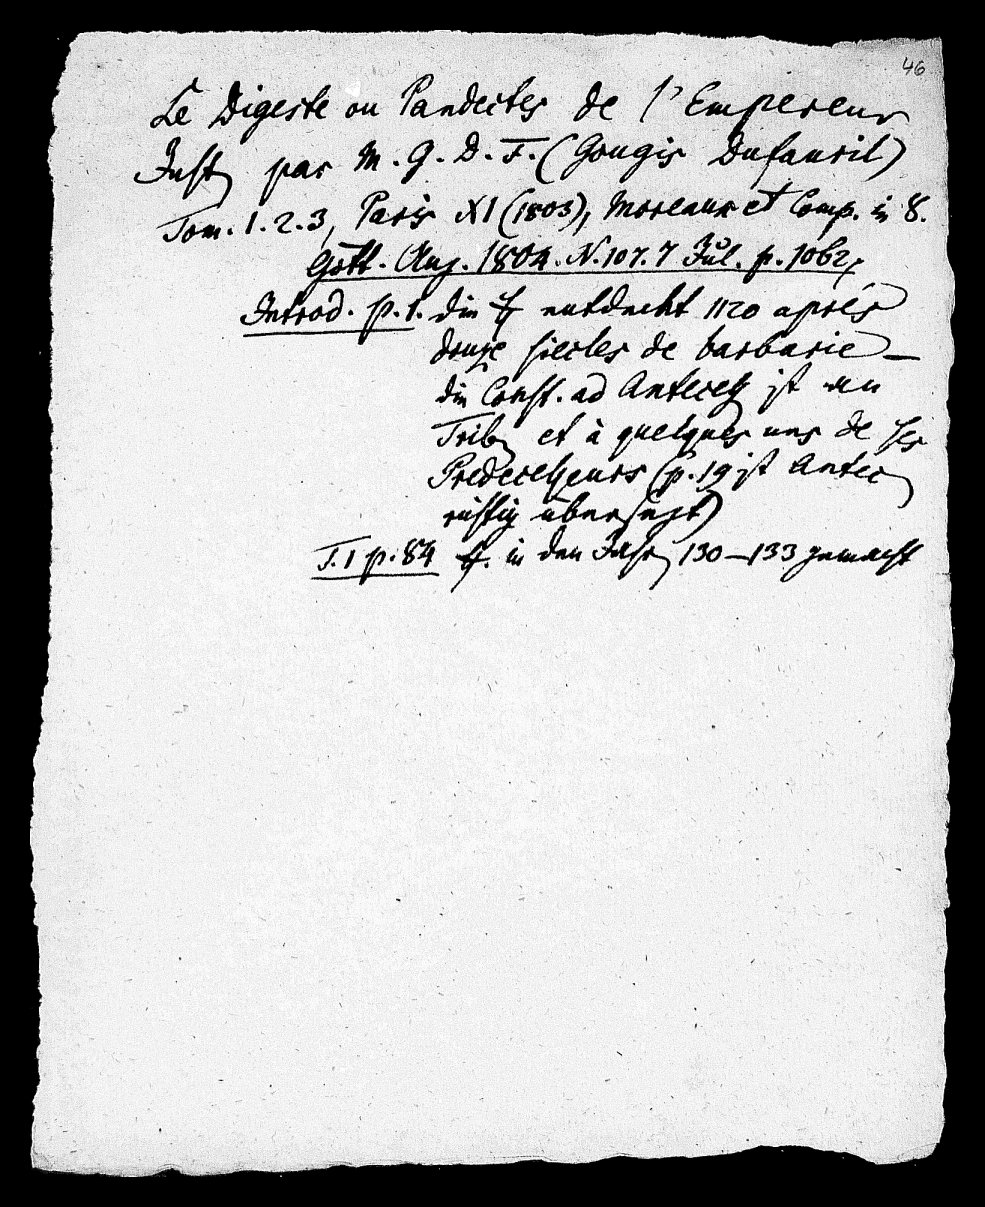 46
Le Digeste ou Pandectes de l'Empereur
Just par M. G. D. F. (Gougis Dufavril)
Tom. 1. 2. 3, Paris XI (1803), Moreaux et Comp. in 8.
Gött. Anz. 1804. N. 107. 7 Jul. p. 1062,
Introd. p. 1. die ff entdeckt 1120 après
douze siecles de barbarie –
die Const. ad Antecess ist an
Trib et à quelques uns de ses
Predecesseurs (p. 19 ist Antec
richtig übersezt)
T. 1 p. 84 ff. in den Jahr 130–133 gemacht